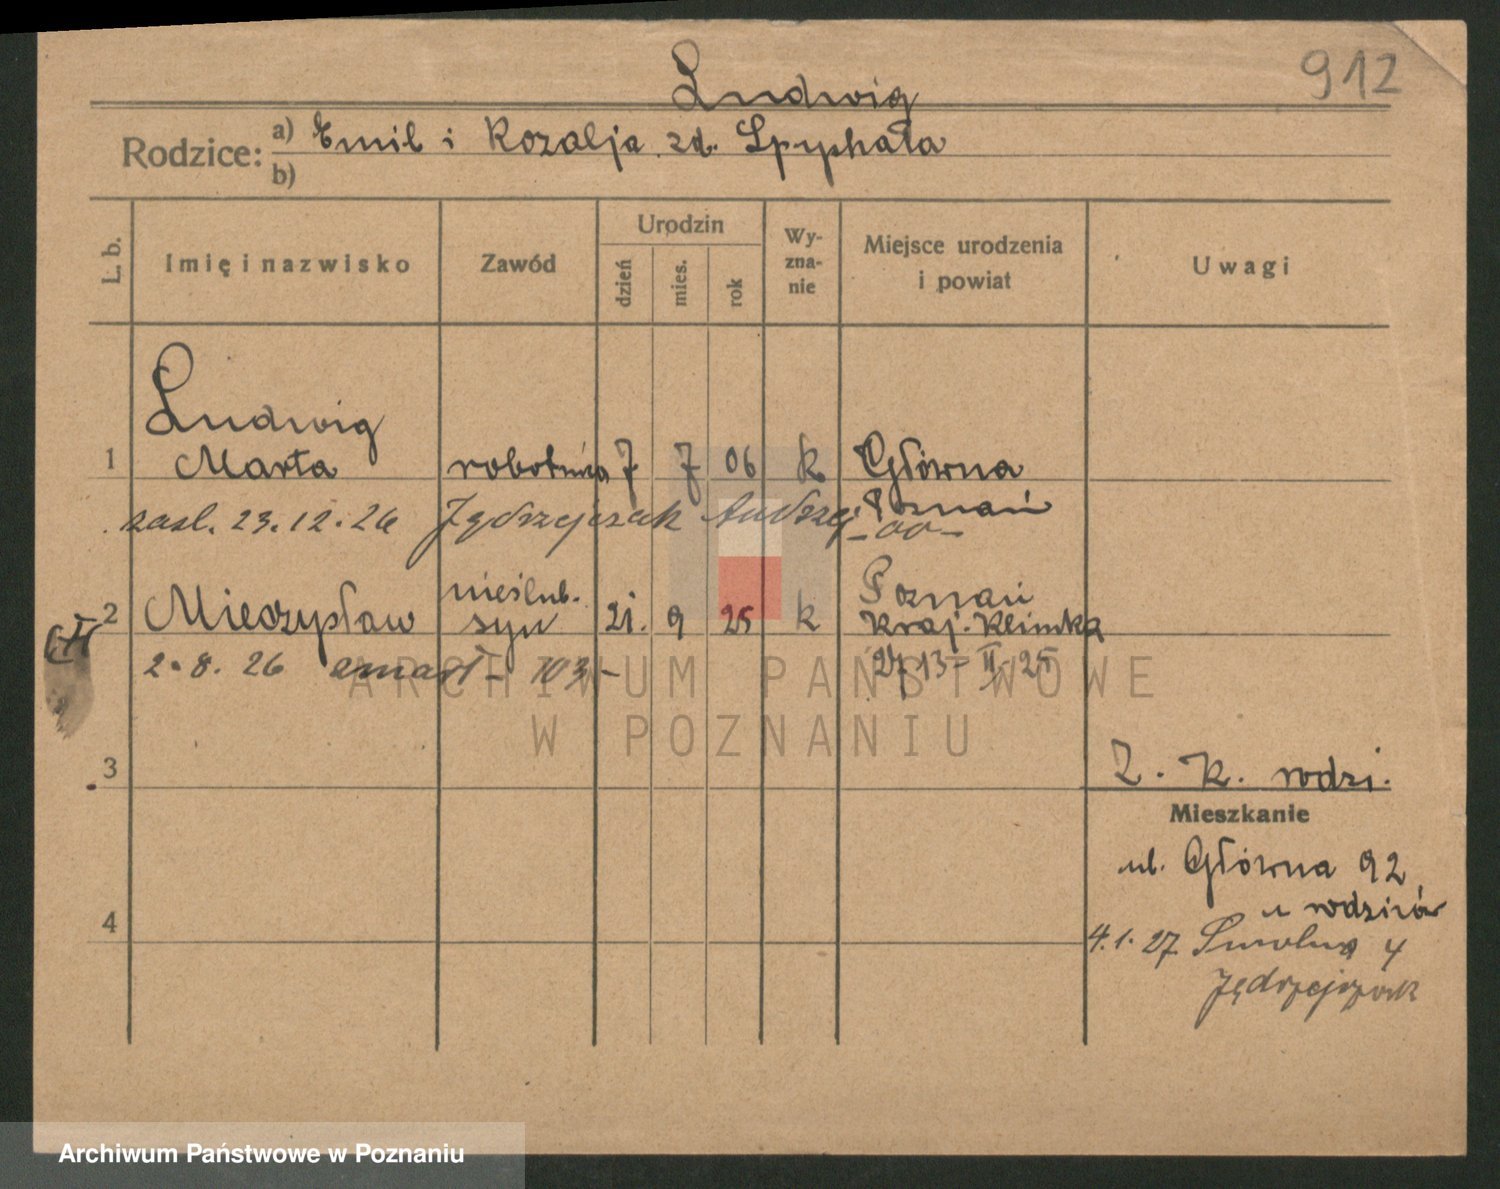 912
Ludwig
Rodzice: a) Emil i Rozalja zd. Spychała
b)
L. b. Imię i nazwisko Zawód Urodzin dzień mies. rok Wy-zna-nie Miejsce urodzenia i powiat Uwagi
Ludwig
1 Marta robotnica 7 7 06 k Główna
Poznań
zasl. 23.12.26 Jędrzejczak Andrzej -oo-
nieślub. Poznań
2 Mieczysław syn 21. 9 25 k Kraj. Klinika
2.8.26 zmarł - 103 - 2713- II - 25
ARCHIWUM PAŃSTWOWE
W POZNANIU
3
Z. K. rodzi.
Mieszkanie
ul. Główna 92
u rodziców
4
4.1.27 Smolna 4
Jędrzejczak
Archiwum Państwowe w Poznaniu